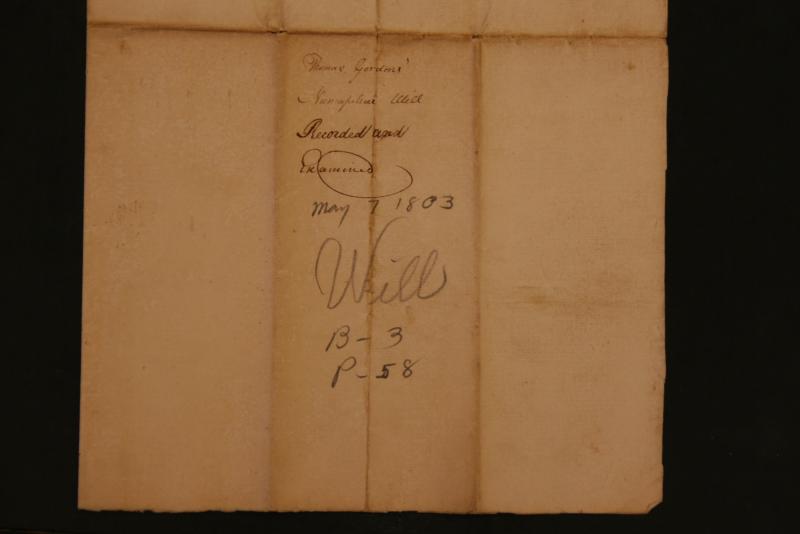 Thomas Gordons'
Nuncupative Will
Recorded and
Examined
May 7 1803
Will
B - 3
P - 58